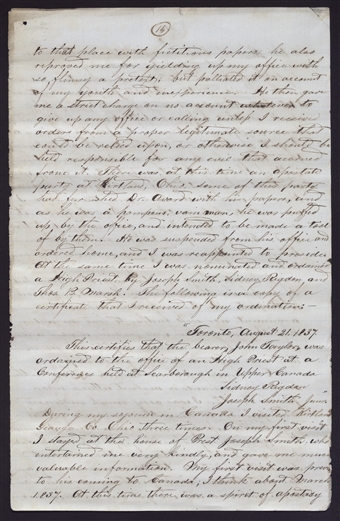 (16)
to that place with fictitious papers. he also
reproved me for yielding up my office with
so flimsy a pretext; but palliated it on account
of my youth and inexperience. He then gave
me a strict charge on no account whatever to
give up my office or calling untill I received
orders from a proper legitimate source that
could be relied upon, or otherwise I should be
held responsible for any evil that accrued
from it. There was at this time an apostate
party at Kirtland, Ohio; some of that party
had furnished Dr. Avard with him papers, and
as he was a pompous, vain man, he was puffed
up by the office, and intended to be made a tool
of by them. He was suspended from his office and
ordered home, and I was reappointed to preside.
At the same time I was nominated and ordained
a High Priest by Joseph Smith, Sidney Rigdon and
Thos B. Marsh. The following is a copy of a
certificate that I received of my ordination:
Toronto, August 21. 1837.
This certifies that the bearer John Taylor, was
ordained to the office of an High Priest at a
Conference held at Scarborough in Upper Canada
Sidney Rigdon
Joseph Smith Junr
During my sejour in Canada I visited Kirtland
Geauga Co. Ohio three times. On my first visit
I stayed at the house of Prest Joseph Smith, who
entertained me very kindly, and gave me much
valuable information. My first visit was prior
to his coming to Canada, I think about March
1837. At this time there was a spirit of apostasy